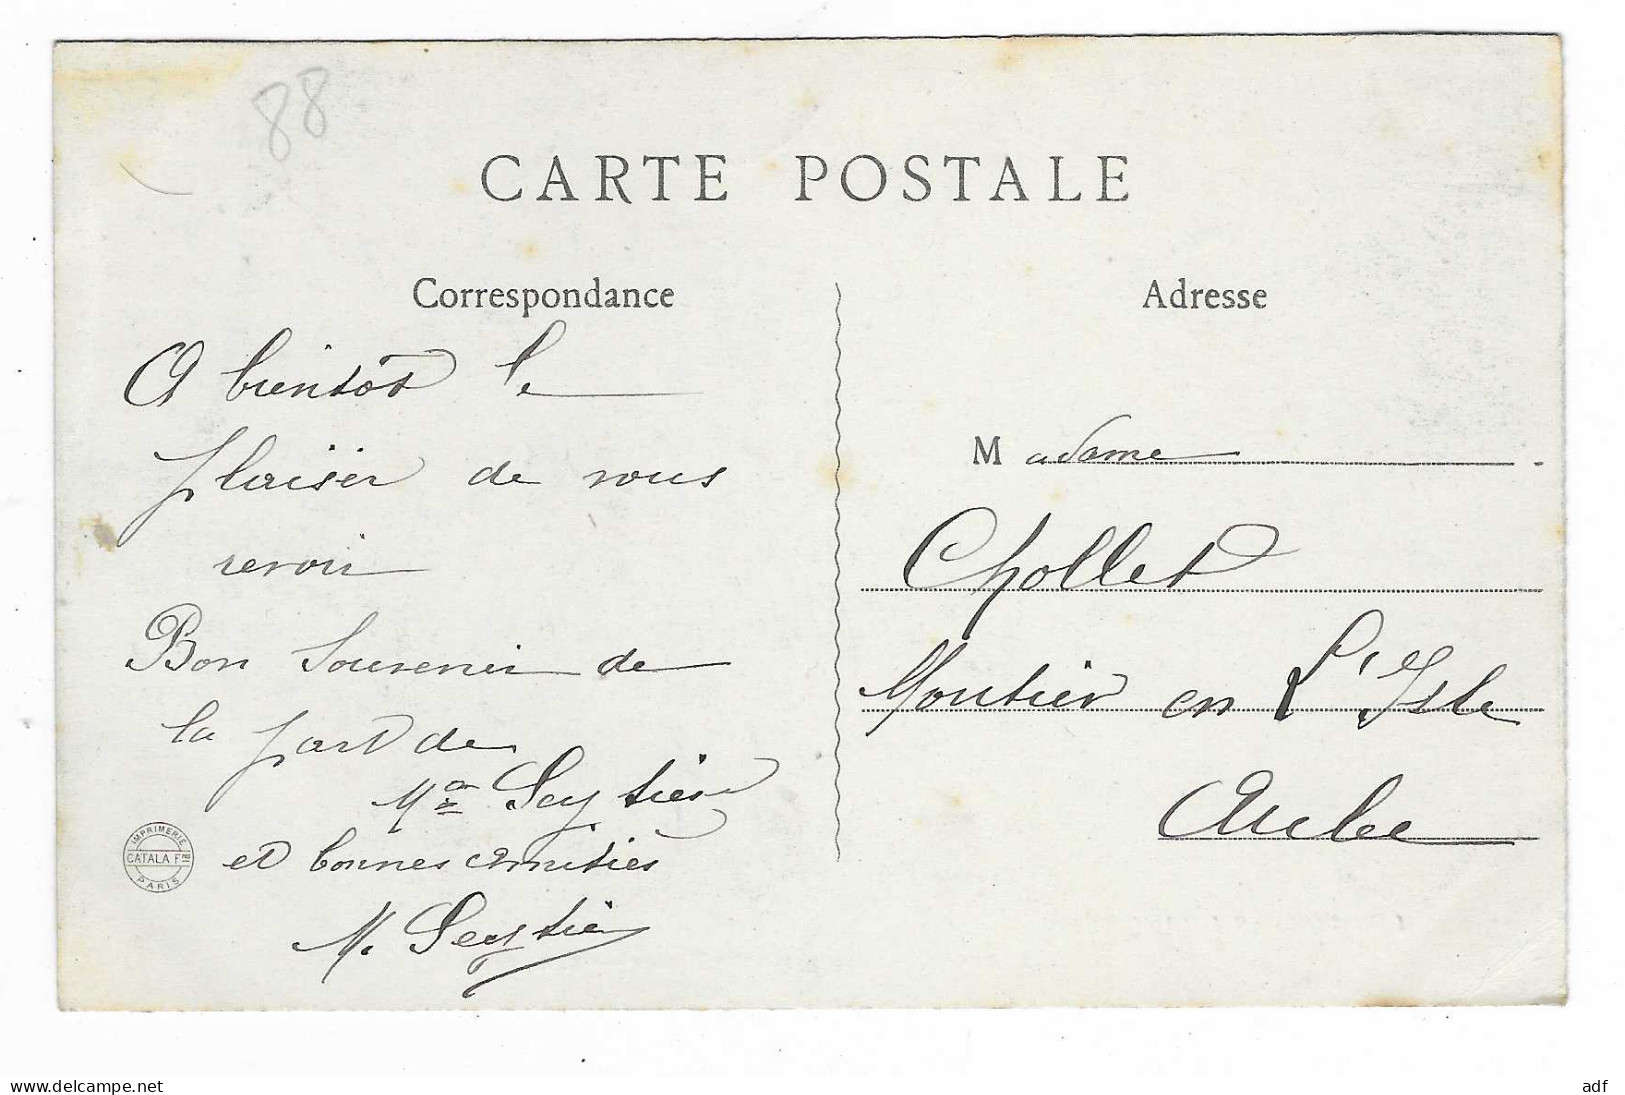 88
CARTE POSTALE
Correspondance
A bientôt le
plaisir de vous
revoir
Bon Souvenir de
la part de
et bonnes amitiés
IMPRIMERIE
CATALA Fres
PARIS
Adresse
Madame
Chollet
Moutier en L'Isle
Aube
www.delcampe.net
adf